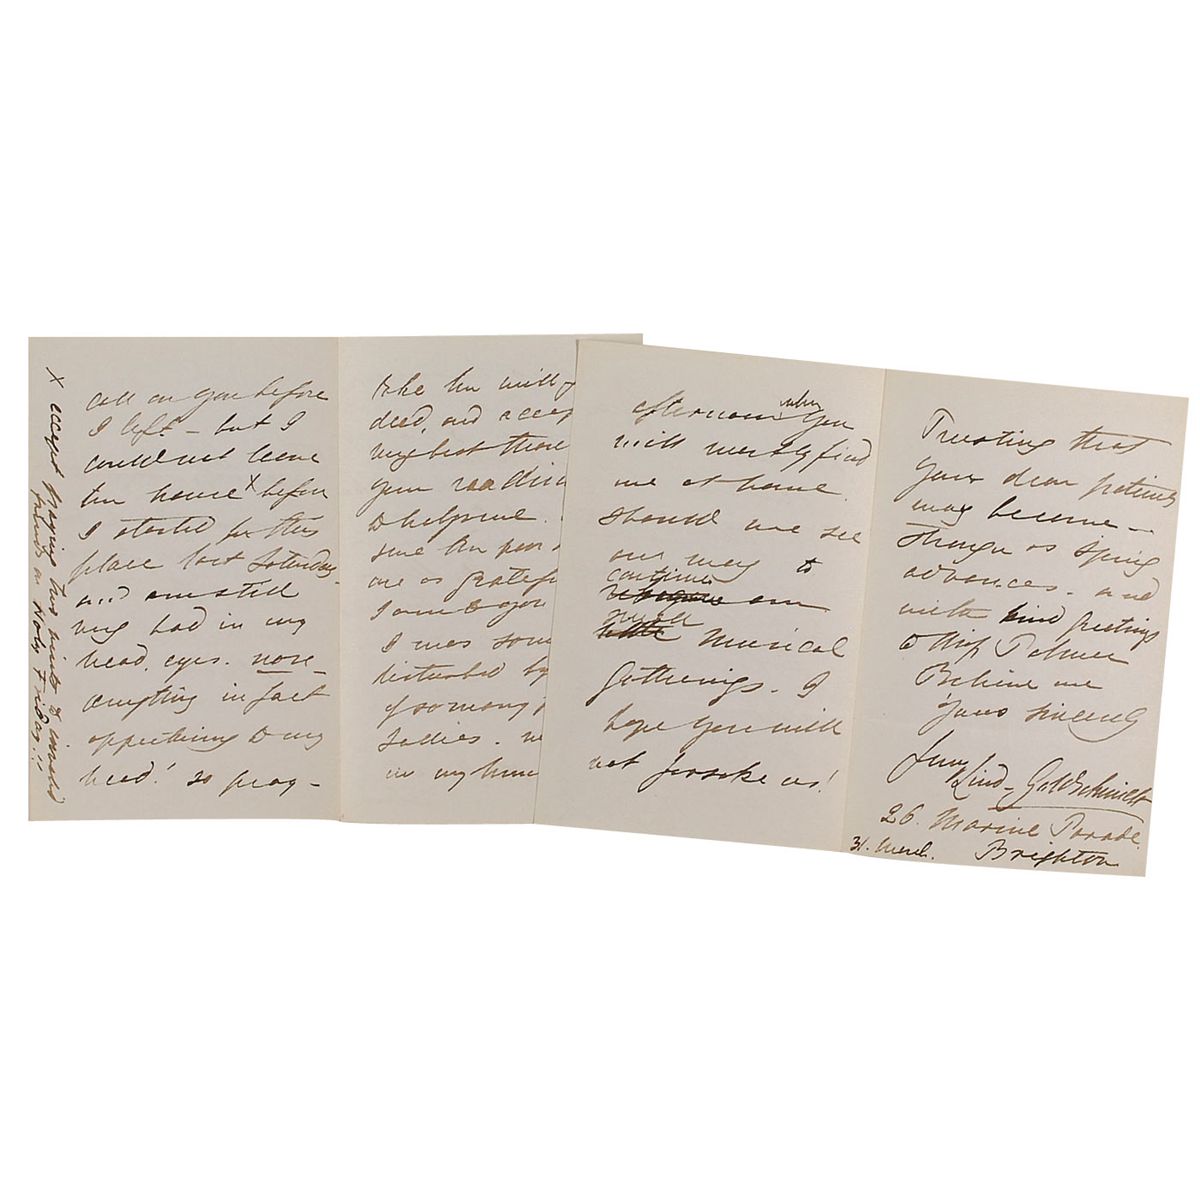 call on you before
I left - but I
could not leave
the house x before
I started for this
place last Saturday -
and am still
very bad in my
head, eyes, nose -
everything in fact
appertaining to my
head! so pray -
x accept paying two visits to invalid
friends on Holy Friday!!
take the will
deed, and accep
my best than
your readin
to help me.
sure the poor
are as gratef
I am to you
I was som
disturbed by
of so many
Ladies.
in my
afternoon when you
will mostly find
me at home.
Should we see
our way to
continue
our
musical
gatherings - I
hope you will
not forsake us!
Trusting that
your dear patients
may become -
stronger as Spring
advances - and
with kind greetings
to Miss Palmer
Believe me
yours sincerely
Jenny
Lind - Goldschmidt
26. Marine Parade.
31. March. Brighton